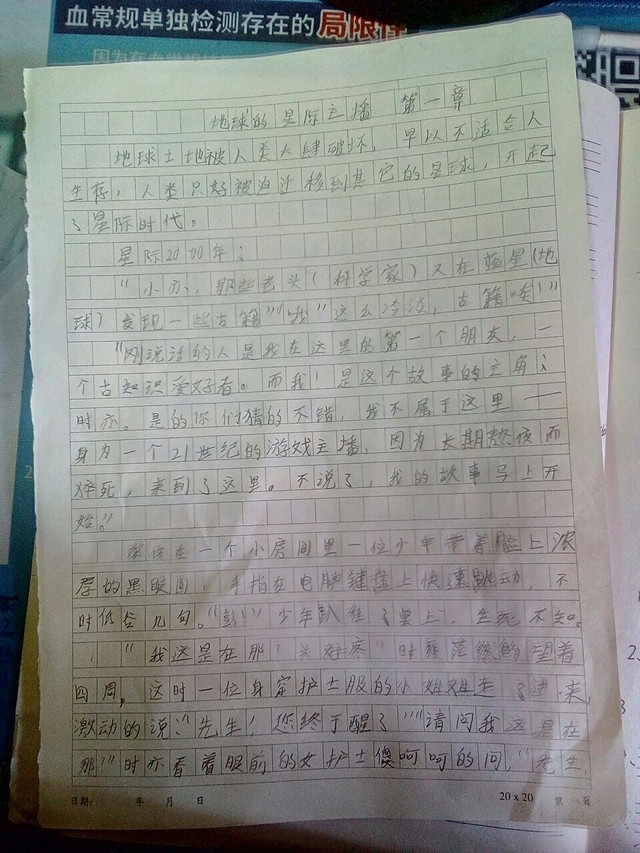 血常规单独检测存在的局限性
地球的星际主播 第一章
地球土地被人类大肆破坏，早以不适合人
生存，人类只好被迫迁移到其它的星球，开起
了星际时代。
星际2000年：
“小亦，那些老头（科学家）又在 里（地
球）发现一些古籍”“哦”“这么冷淡，古籍唉！”
“刚说话的人是我在这里的第一个朋友，一
个古知识爱好者。而我！是这个故事的主角：
时亦。是的你们猜的不错，我不属于这里——
身为一个21世纪的游戏主播，因为长期熬夜而
猝死，来到了这里。不说了，我的故事马上开
始。”
在一个小房间里一位少年带着脸上浓
厚的黑眼圆，手指在电脑键盘上快速跳动，不
时低谷几句。“彭！”少年趴在了桌上，生死不知。
“我这是在那？头好疼”时 茫然的望着
四周。这时一位身穿护士服的小姐姐走了进来，
激动的说：“先生！您终于醒了”“请问我这是在
那？”时亦看着眼前的女护士傻呵呵的问，“先生，
日期： 年 月 日 20 x 20 第 页